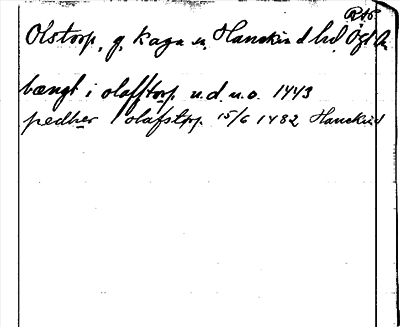 R16
Olstorp, g. Kaga sn, Hanekind hd, Ögl
bængt i olafftorp u.d. u.o. 1443
pedher i olafstpp 15/6 1482 Hanekind